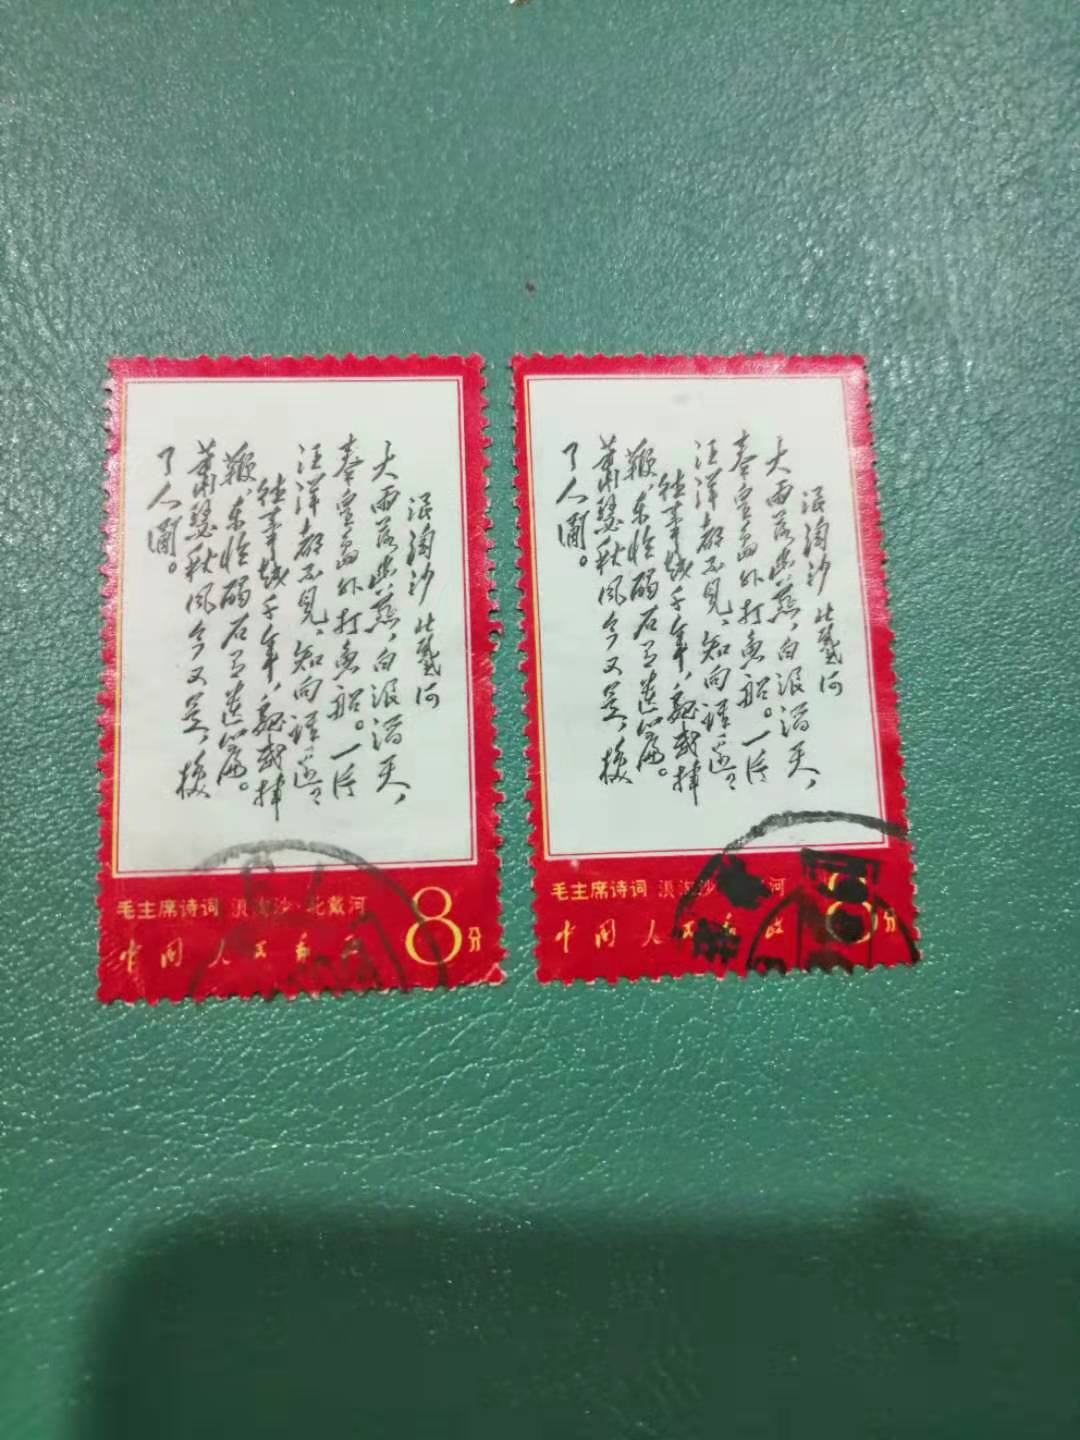 浪淘沙 北戴河
大雨落幽燕，白浪滔天，
秦皇島外打魚船。一片
汪洋都不見，知向誰邊？
往事越千年，魏武揮
鞭，東臨碣石有遺篇。
蕭瑟秋風今又是，換
了人間。
毛主席诗词 浪淘沙·北戴河
8分
中国人民邮政
浪淘沙 北戴河
大雨落幽燕，白浪滔天，
秦皇島外打魚船。一片
汪洋都不見，知向誰邊？
往事越千年，魏武揮
鞭，東臨碣石有遺篇。
蕭瑟秋風今又是，換
了人間。
毛主席诗词 浪淘沙 戴河
8分
中国人民邮政